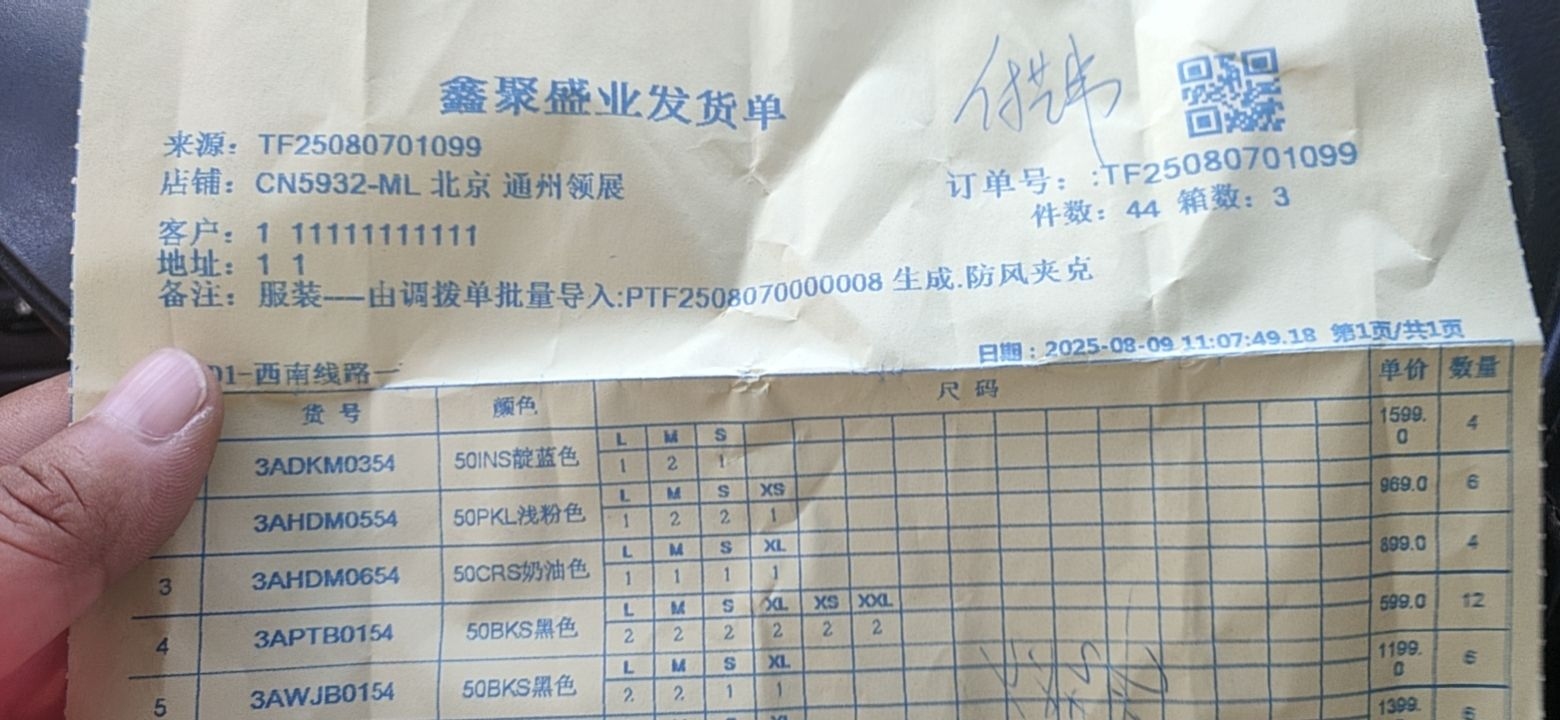 鑫聚盛业发货单
来源：TF25080701099
店铺：CN5932-ML 北京 通州领展
订单号：:TF25080701099
件数：44 箱数：3
客户：1 11111111111
地址：1 1
备注：服装——由调拨单批量导入:PTF2508070000008 生成.防风夹克
日期：2025-08-09 11:07:49.18 第1页/共1页
01-西南线路一
货号 颜色 尺码 单价 数量
L M S
3ADKM0354 50INS靛蓝色 1 2 1 1599.0 4
L M S XS
3AHDM0554 50PKL浅粉色 1 2 2 1 969.0 6
L M S XL
3 3AHDM0654 50CRS奶油色 1 1 1 1 899.0 4
L M S XL XS XXL
4 3APTB0154 50BKS黑色 2 2 2 2 2 2 599.0 12
L M S XL
5 3AWJB0154 50BKS黑色 2 2 1 1 1199.0 6
1399.